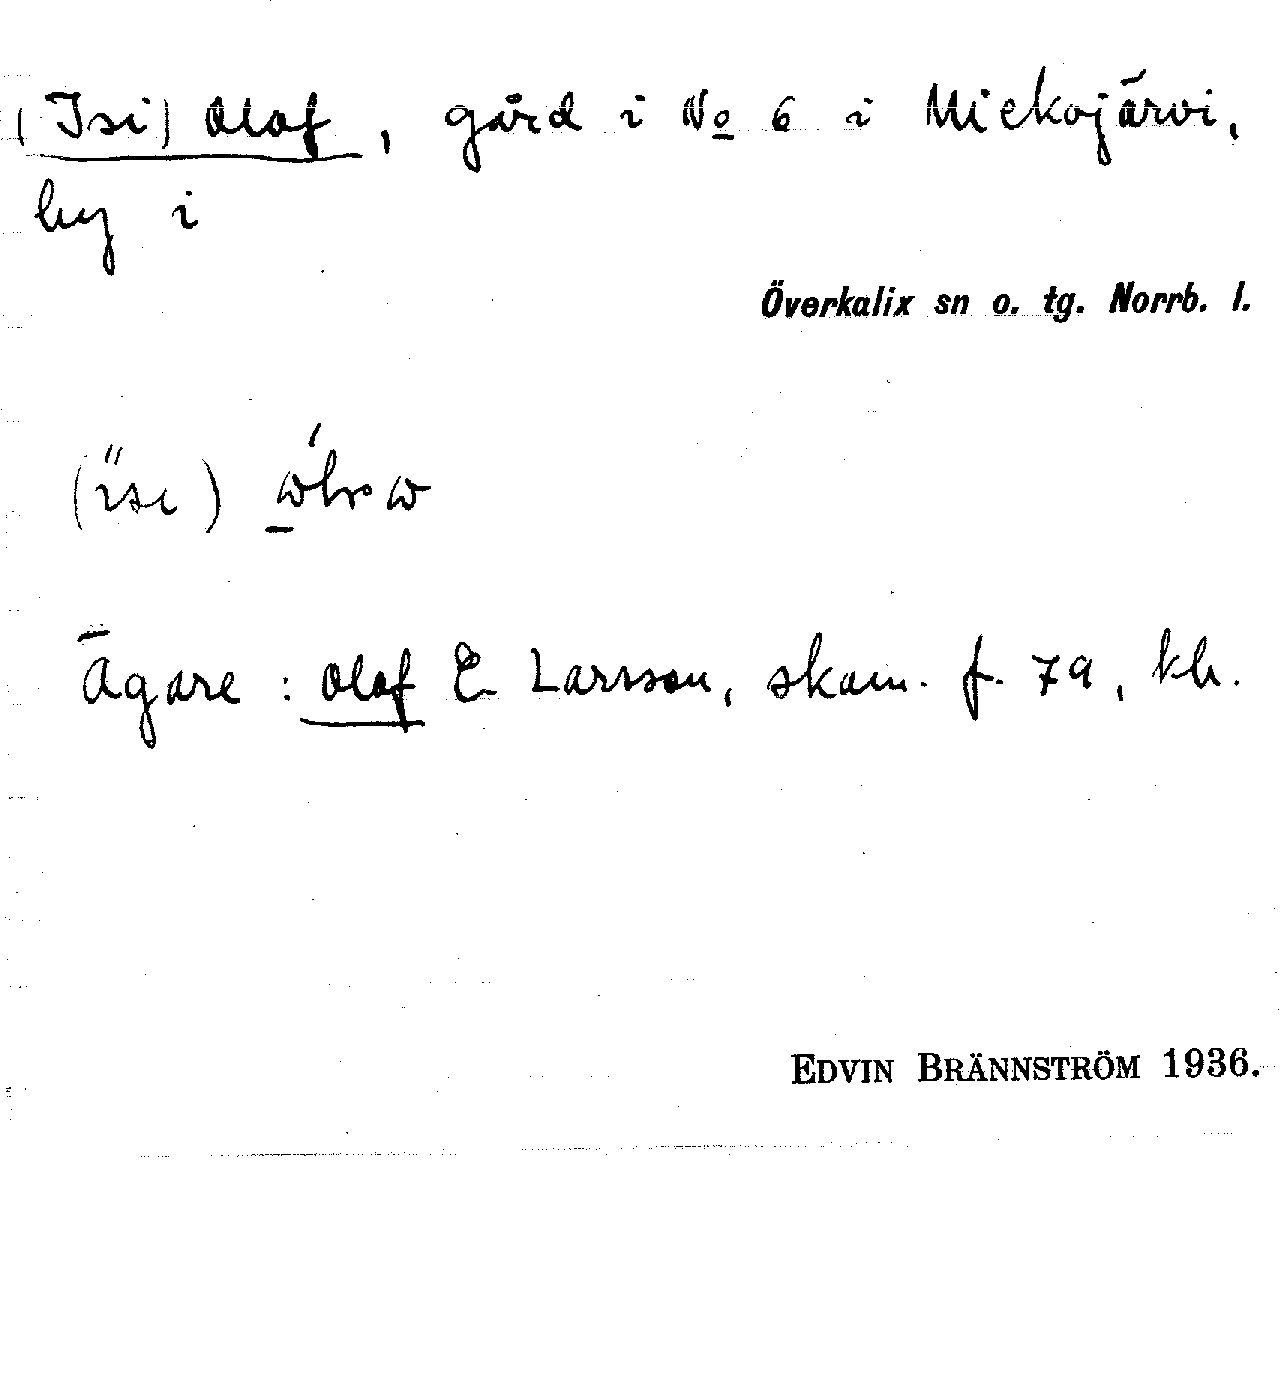 (Isi) Olof, gård i No 6 i Miekojärvi,
by i
Överkalix sn o. tg. Norrb. l.
Ägare: Olof E Larsson, skam. f. 79, kh.
EDVIN BRÄNNSTRÖM 1936.